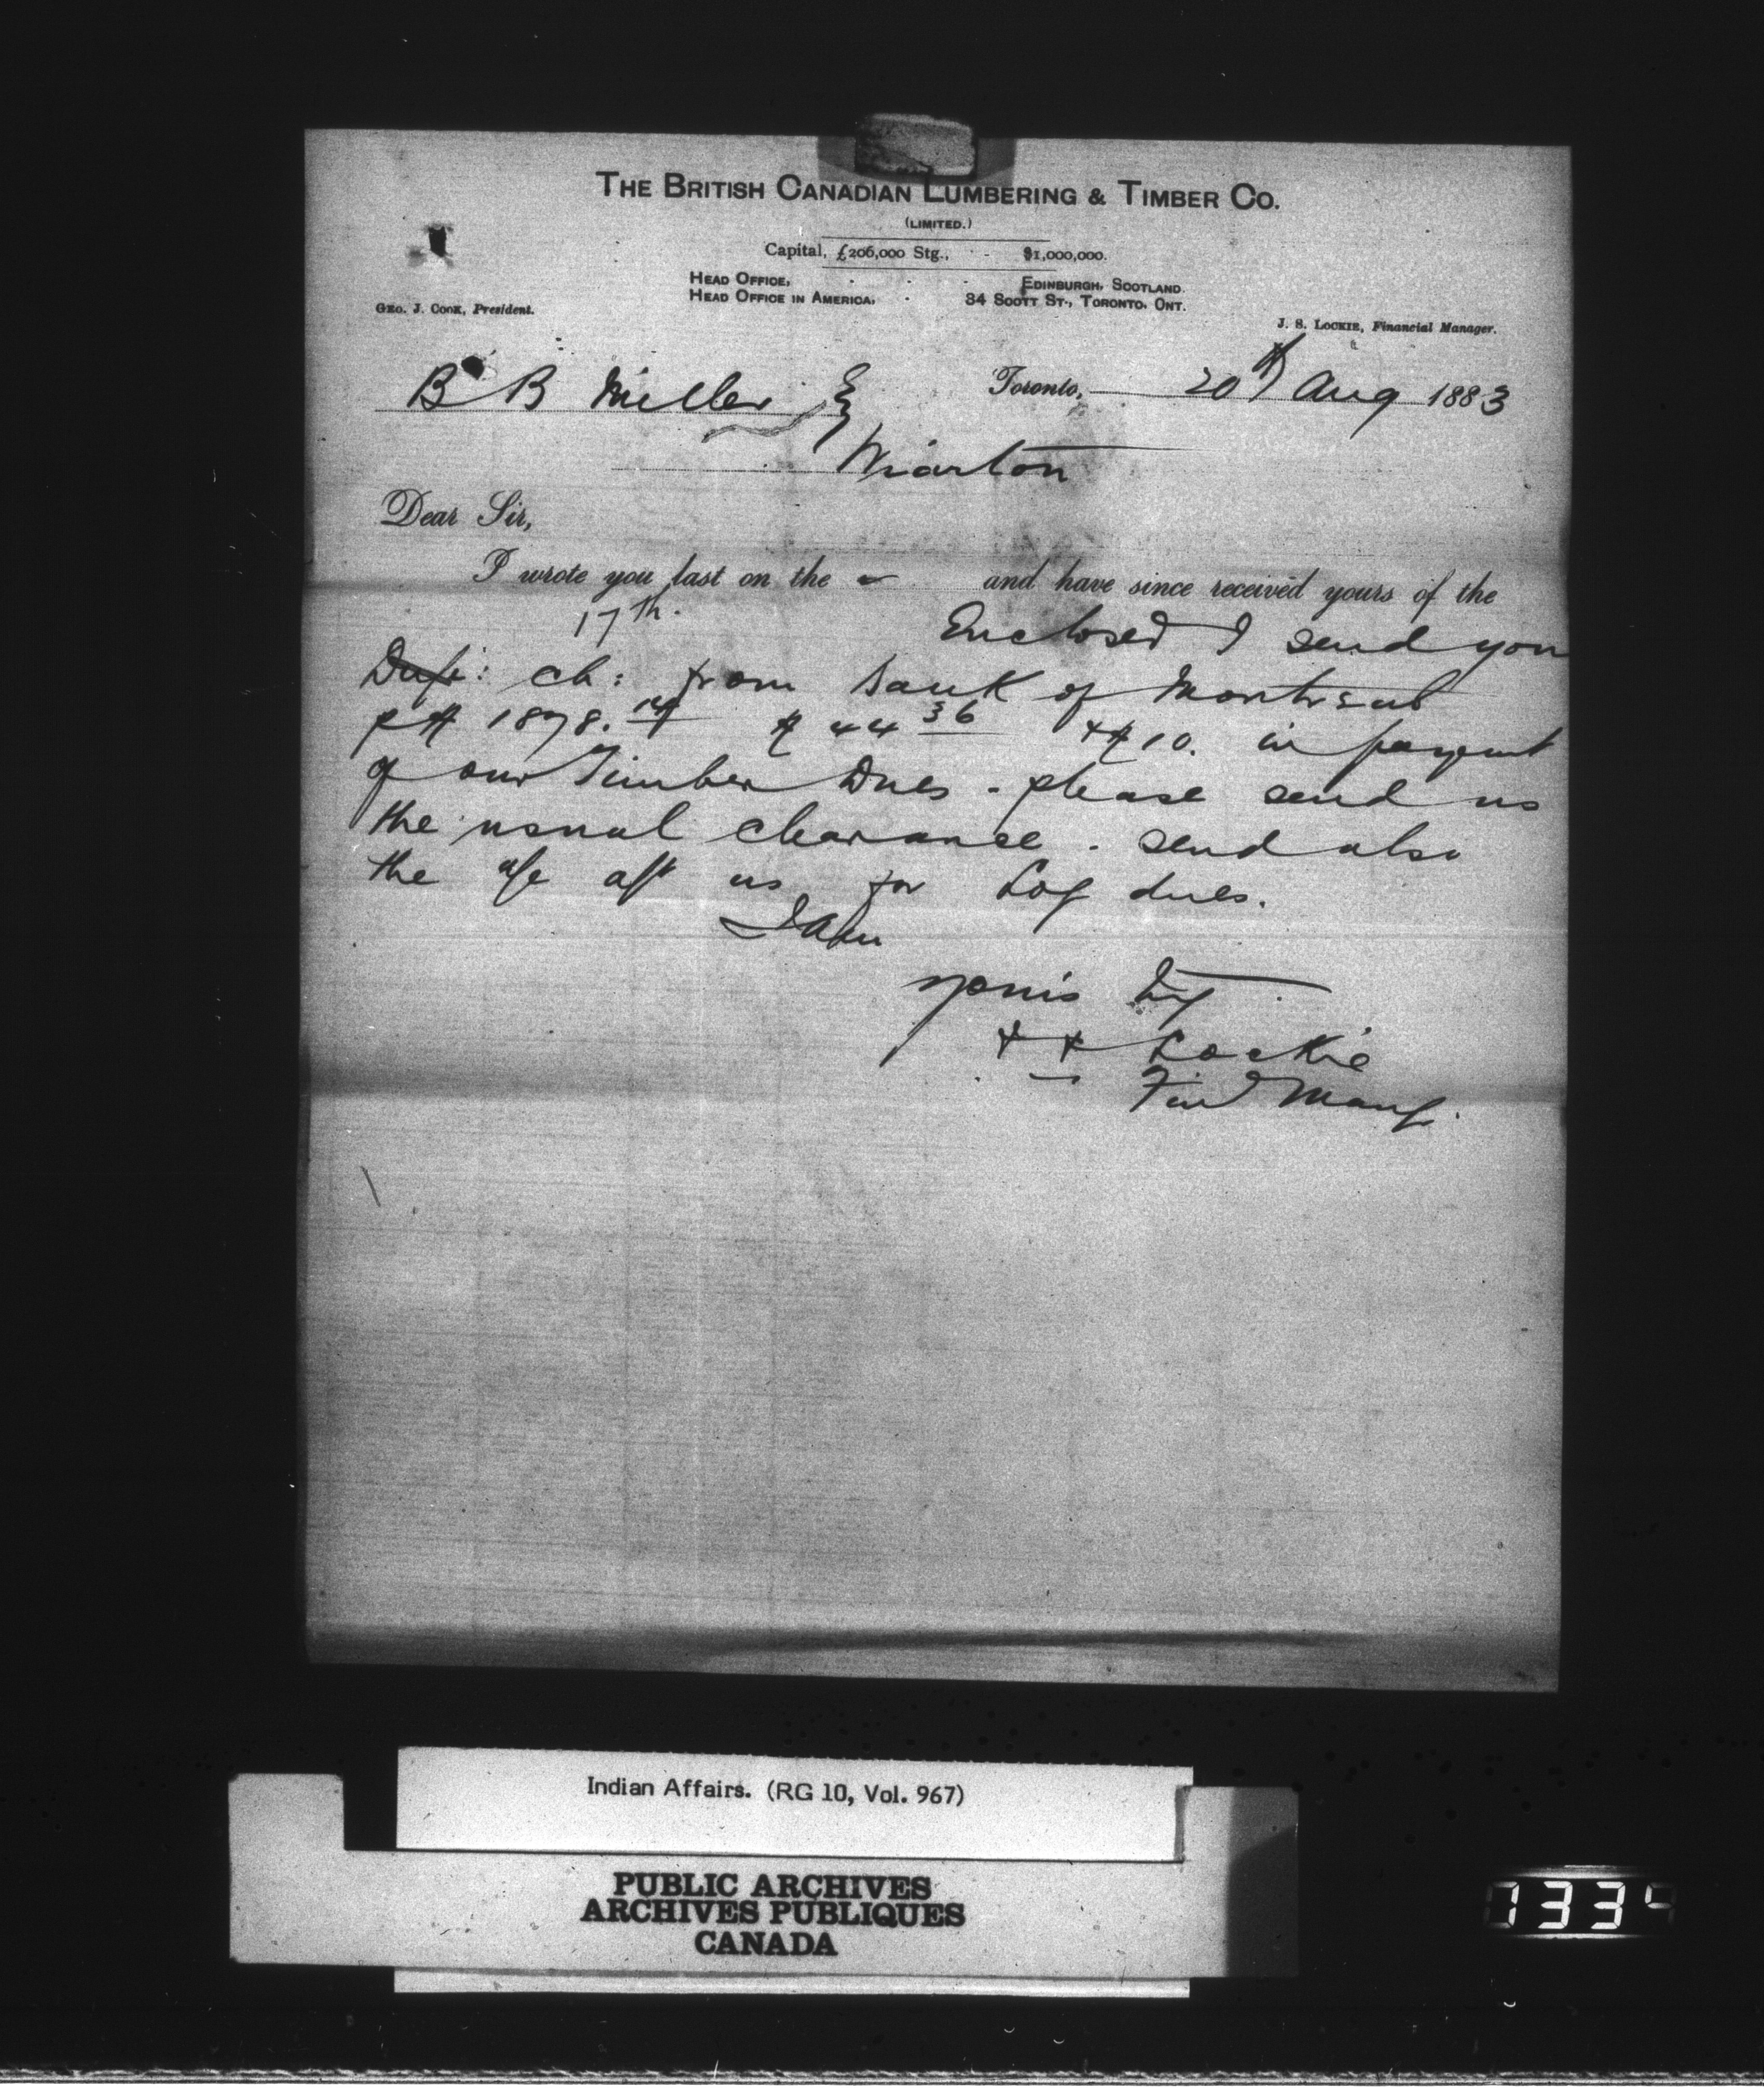 THE BRITISH CANADIAN LUMBERING & TIMBER CO.
(LIMITED.)
Capital, £206,000 Stg., - $1,000,000.
HEAD OFFICE, · · · EDINBURGH, SCOTLAND.
HEAD OFFICE IN AMERICA, · 34 SCOTT ST., TORONTO, ONT.
GEO. J. COOK, President.
J. S. LOCKIE, Financial Manager.
B B Miller Esq
Toronto, 20th Aug 1883
Wiarton
Dear Sir,
I wrote you last on the - and have since received yours of the
17th. Enclosed I send you
ch: from Bank of Montreal
for $ 1878. $ 44 36 + $10. in payment
of our Timber Dues - please send us
the usual clearance - send also
the a/c agst us for Log dues.
I am
yours try
Lockie
Fin Mang.
Indian Affairs. (RG 10, Vol. 967)
PUBLIC ARCHIVES
ARCHIVES PUBLIQUES
CANADA
1334